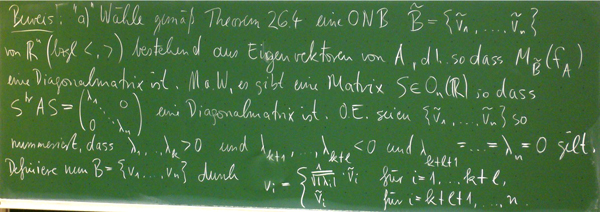 Beweis: "a) Wähle gemäß Theorem 26.4 eine ONB B̃ = {ṽ₁, ..., ṽₙ}
von ℝⁿ (bzgl <,>) bestehend aus Eigenvektoren von A, d.h. so dass M_B̃(f_A)
eine Diagonalmatrix ist. M.a.W, es gibt eine Matrix S∈Oₙ(ℝ) so dass
Sᵗʳ A S = (λ₁ 0 ⋱ 0 λₙ) eine Diagonalmatrix ist. O.E. seien {ṽ₁, ..., ṽₙ} so
nummeriert, dass λ₁, ..., λₖ > 0 und λₖ₊₁, ..., λₖ₊ₗ < 0 und λₖ₊ₗ₊₁ = ... = λₙ = 0 gilt.
Definiere nun B = {v₁, ..., vₙ} durch vᵢ = { 1/√|λᵢ| · ṽᵢ für i = 1, ... k+l,
ṽᵢ für i = k+l+1, ... n.